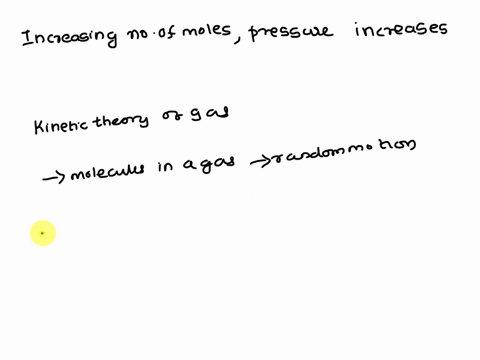 Increasing no. of moles, pressure increases
Kinetic theory of gas
→ molecules in a gas → random motion